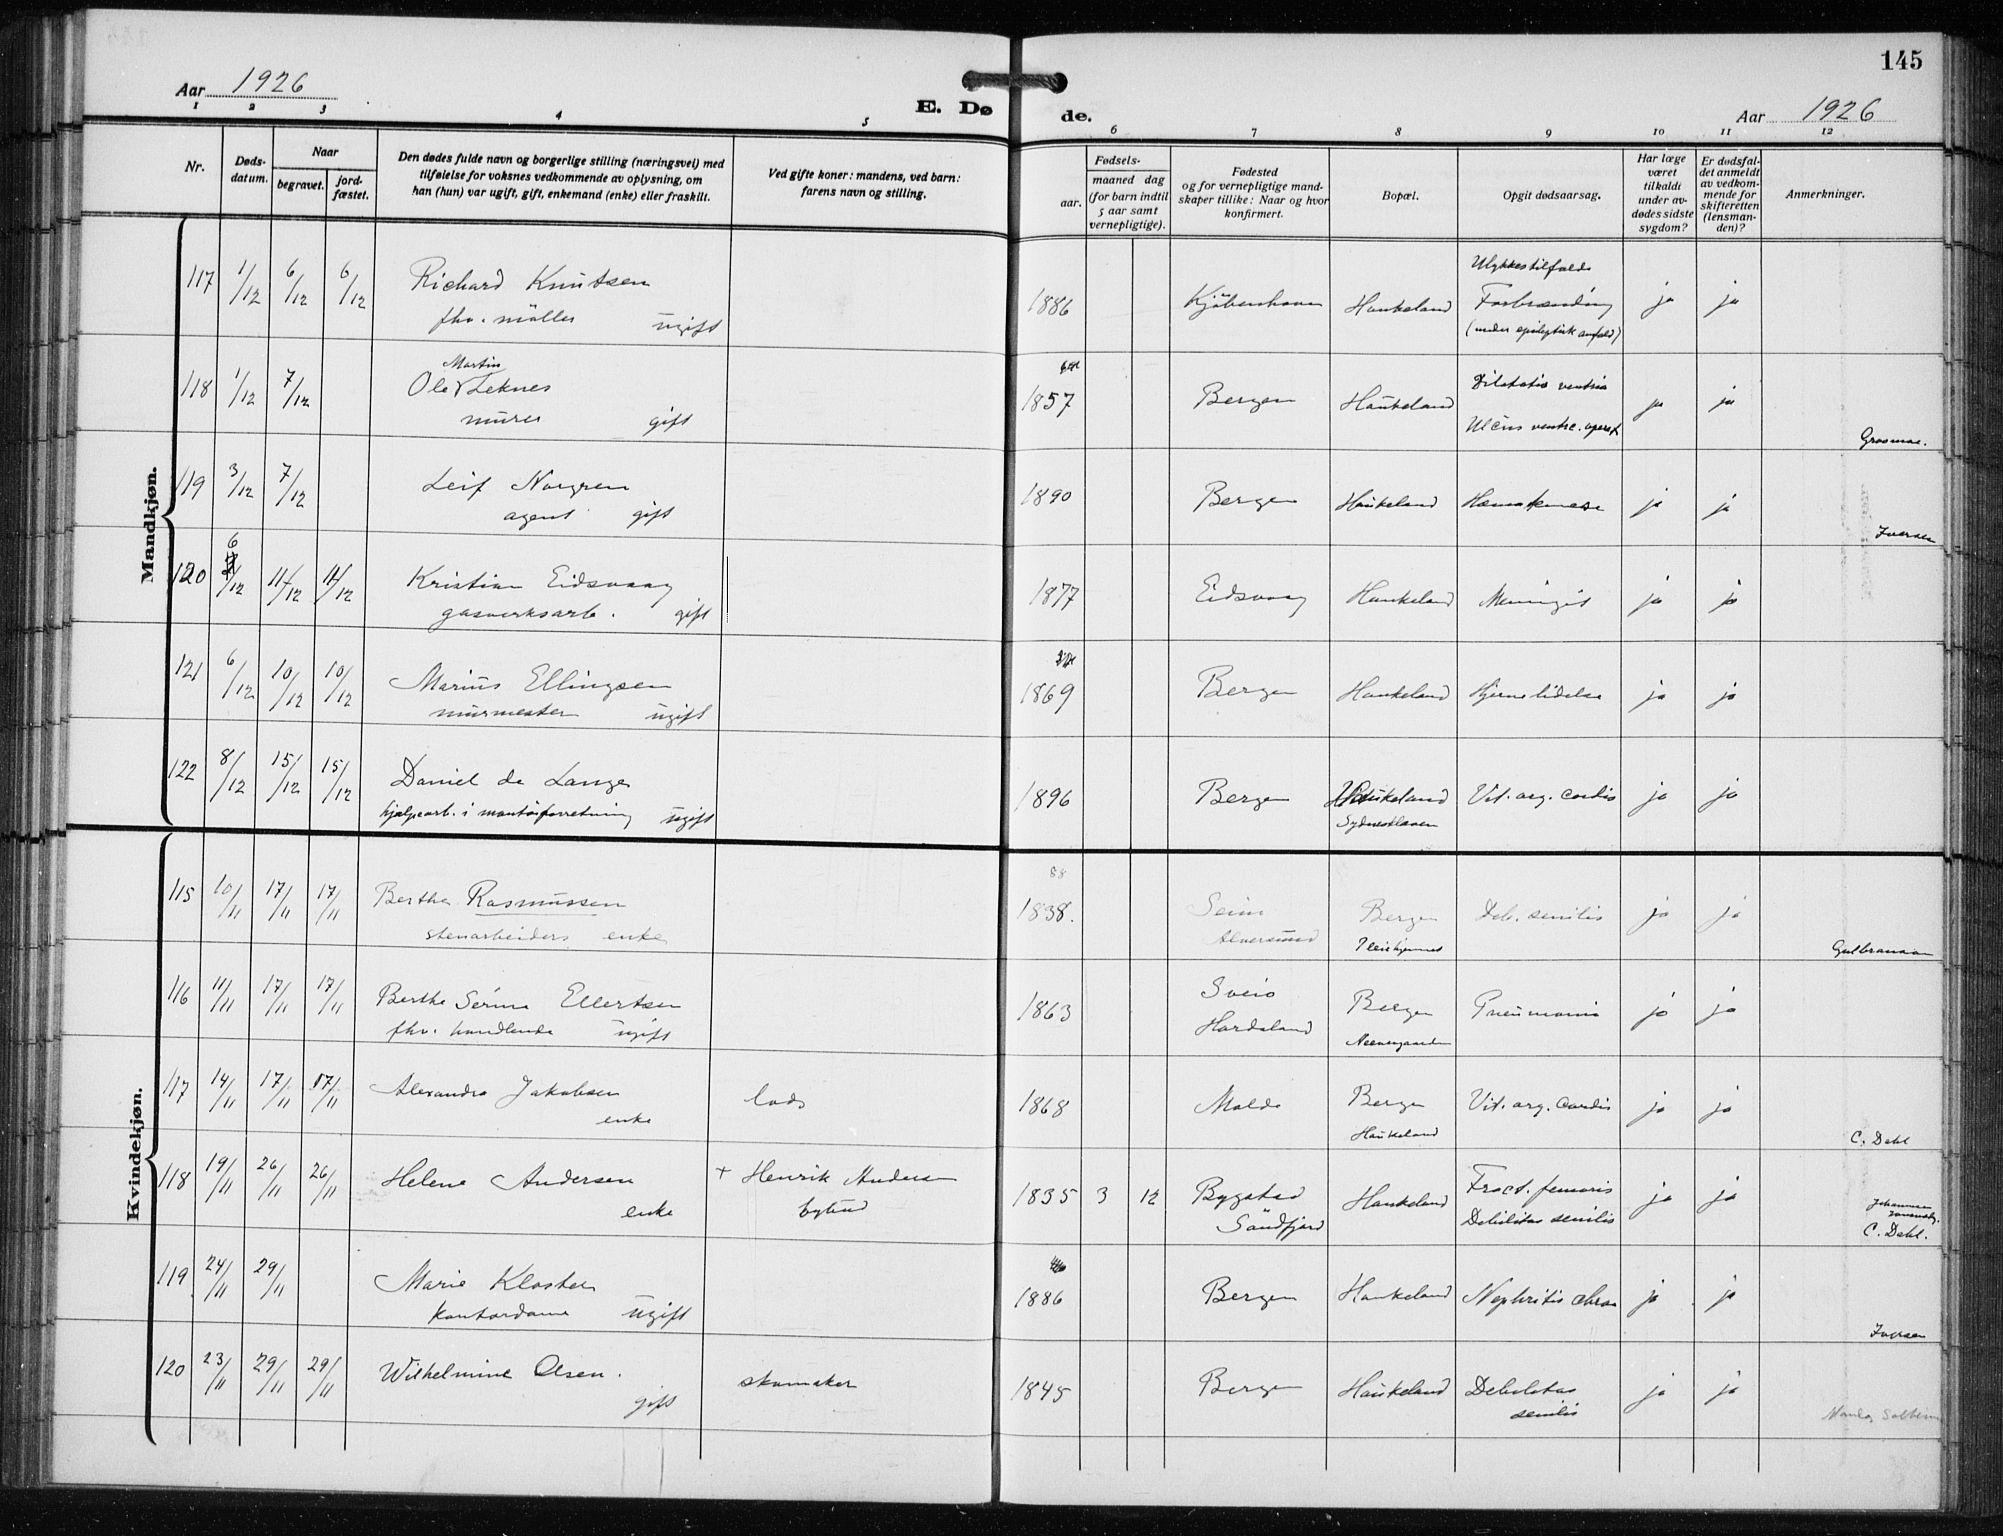 145
Aar 1926
E. Dø de.
Aar 1926
1 2 3 4 5 6 7 8 9 10 11 12
Nr.
Døds-
datum.
Naar
begravet.
jord-
fæstet.
Den dødes fulde navn og borgerlige stilling (næringsvei) med
tilføielse for voksnes vedkommende av oplysning, om
han (hun) var ugift, gift, enkemand (enke) eller fraskilt.
Ved gifte koner: mandens, ved barn:
farens navn og stilling.
Fødsels-
aar.
maaned dag
(for barn indtil
5 aar samt
vernepligtige).
Fødested
og for vernepligtige mand-
skaper tillike: Naar og hvor
konfirmert.
Bopæl.
Opgit dødsaarsag.
Har læge
været
tilkaldt
under av-
dødes sidste
sygdom?
Er dødsfal-
det anmeldt
av vedkom-
mende for
skifteretten
(lensman-
den)?
Anmerkninger.
Mandkjøn.
117 1/12 6/12 6/12 Richard Knutsen
fhv. møller ugift
1886 Kjøbenhavn Haukeland Ulykkestilfælde
Forbrænding
(under epileptisk anfald)
ja ja
118 1/12 7/12 Ole Martin Leknes
murer gift
1857 Bergen Haukeland Dilatatio ventric
Ulcus ventric. operat
ja ja
119 3/12 7/12 Leif Norgren
agent gift
1890 Bergen Haukeland Hæmatemese ja ja
Iversen
120 6/12 11/12 11/12 Kristian Eidsvaag
gasverksarb. gift
1877 Eidsvaag Haukeland Meningit ja ja
121 6/12 10/12 10/12 Marius Ellingsen
murmester ugift
1869 Bergen Haukeland Hjernelidelse ja ja
122 8/12 15/12 15/12 Daniel de Lange
hjælpearb. i montørforretning ugift
1896 Bergen Haukeland
Vit. org. cordis ja ja
Kvindekjøn.
115 10/11 17/11 17/11 Bertha Rasmussen
stenarbeiders enke
88
1838. Seim
Alversund
Bergen
Pleiehjemmet
Deb. senilis ja ja
Gulbransen
116 11/11 17/11 17/11 Berthe Serine Ellertsen
fhv. handlende ugift
1863 Sveio
Hordaland
Bergen
Neevengaarden
Pneumonia ja ja
117 14/11 17/11 17/11 Alexandra Jakobsen
enke
lods
1868 Molde Bergen
Haukeland
Vit. org. cordis ja ja
C. Dahl
118 19/11 26/11 26/11 Helene Andersen
enke
+ Henrik Andersen
bybud
1835 3 12 Bygstad
Søndfjord
Haukeland Fract. femoris
Debilitas senilis
ja ja
C. Dahl.
119 24/11 29/11 Marie Kloster
kontordame ugift
1886 Bergen Haukeland Nephritis chron ja ja
Iversen
120 23/11 29/11 29/11 Wilhelmine Olsen.
gift
skomaker
1845 Bergen Haukeland Debilitas
senilis
ja ja